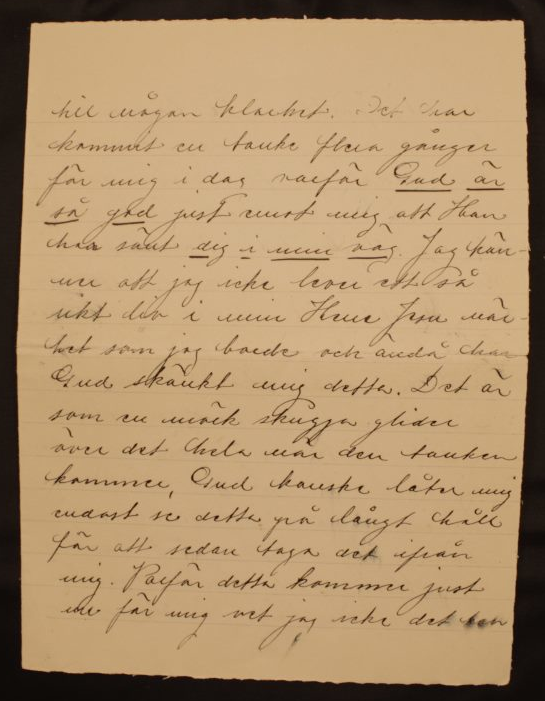 till någon klarhet. Det har
kommit en tanke flera gånger
för mig i dag varför Gud är
så god just emot mig att Han
har sänt dig i min väg. Jag kän-
ner att jag icke lever ett så
rikt liv i min Herre Jesu när-
het som jag borde och ändå har
Gud skänkt mig detta. Det är
som en mörk skugga glider
över det hela när den tanken
kommer, Gud kanske låter mig
endast se detta på långt håll
för att sedan taga det ifrån
mig. Varför detta kommer just
nu för mig vet jag icke det kan